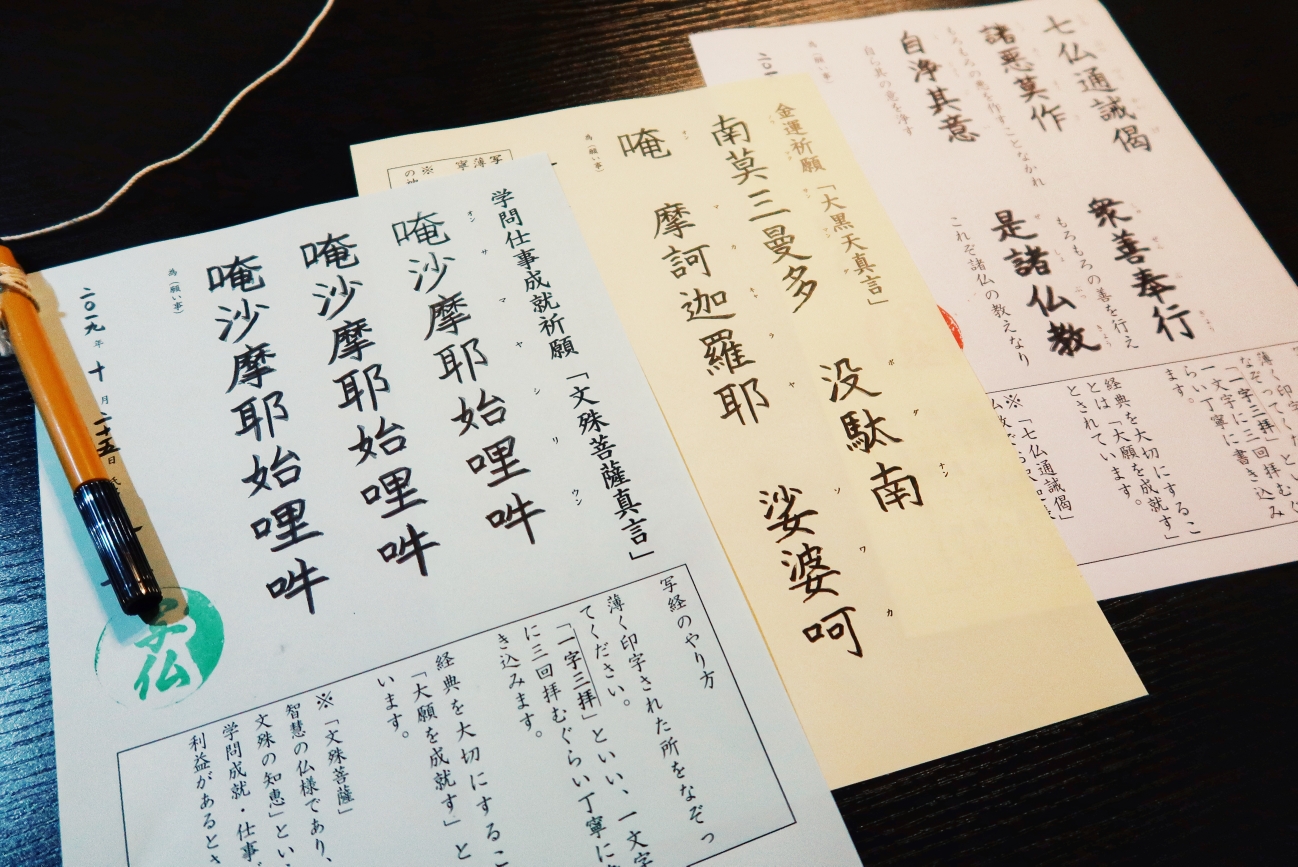 七仏通誡偈
諸悪莫作
もろもろの悪を作すことなかれ
衆善奉行
もろもろの善を行え
自浄其意
自ら其の意を浄す
是諸仏教
これぞ諸仏の教えなり
為(願い事)
「一字三拝」
一文字に三回拝むぐ
らい丁寧に書き込み
ます。
経典を大切にするこ
とは、「大願を成就す」
とされています。
※「七仏通誡偈」
金運祈願「大黒天真言」
南莫三曼多 没駄南
ボダナン
唵 摩訶迦羅耶 娑婆呵
オン マカキャラヤ ソワカ
為(願い事)
学問仕事成就祈願「文殊菩薩真言」
オンサマヤシリウン
唵沙摩耶始哩吽
唵沙摩耶始哩吽
唵沙摩耶始哩吽
為(願い事)
二〇一九年十月二十五日
写経のやり方
薄く印字された所をなぞっ
てください。
「一字三拝」といい、一文字
に三回拝むぐらい丁寧に書
き込みます。
経典を大切にするこ
「大願を成就す」と
います。
※「文殊菩薩」
智慧の仏様であり、
文殊の知恵」とい
学問成就・仕事
利益があるとさ
仏